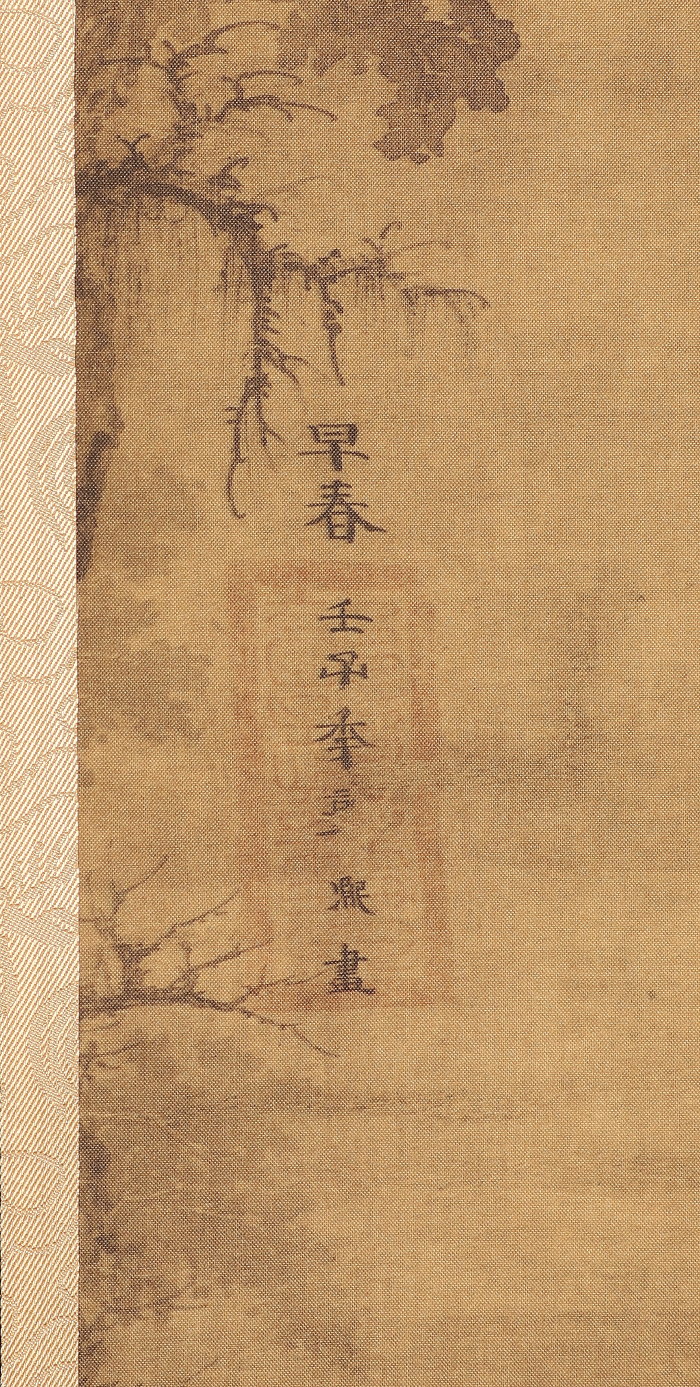 早春 壬子年 熙畫